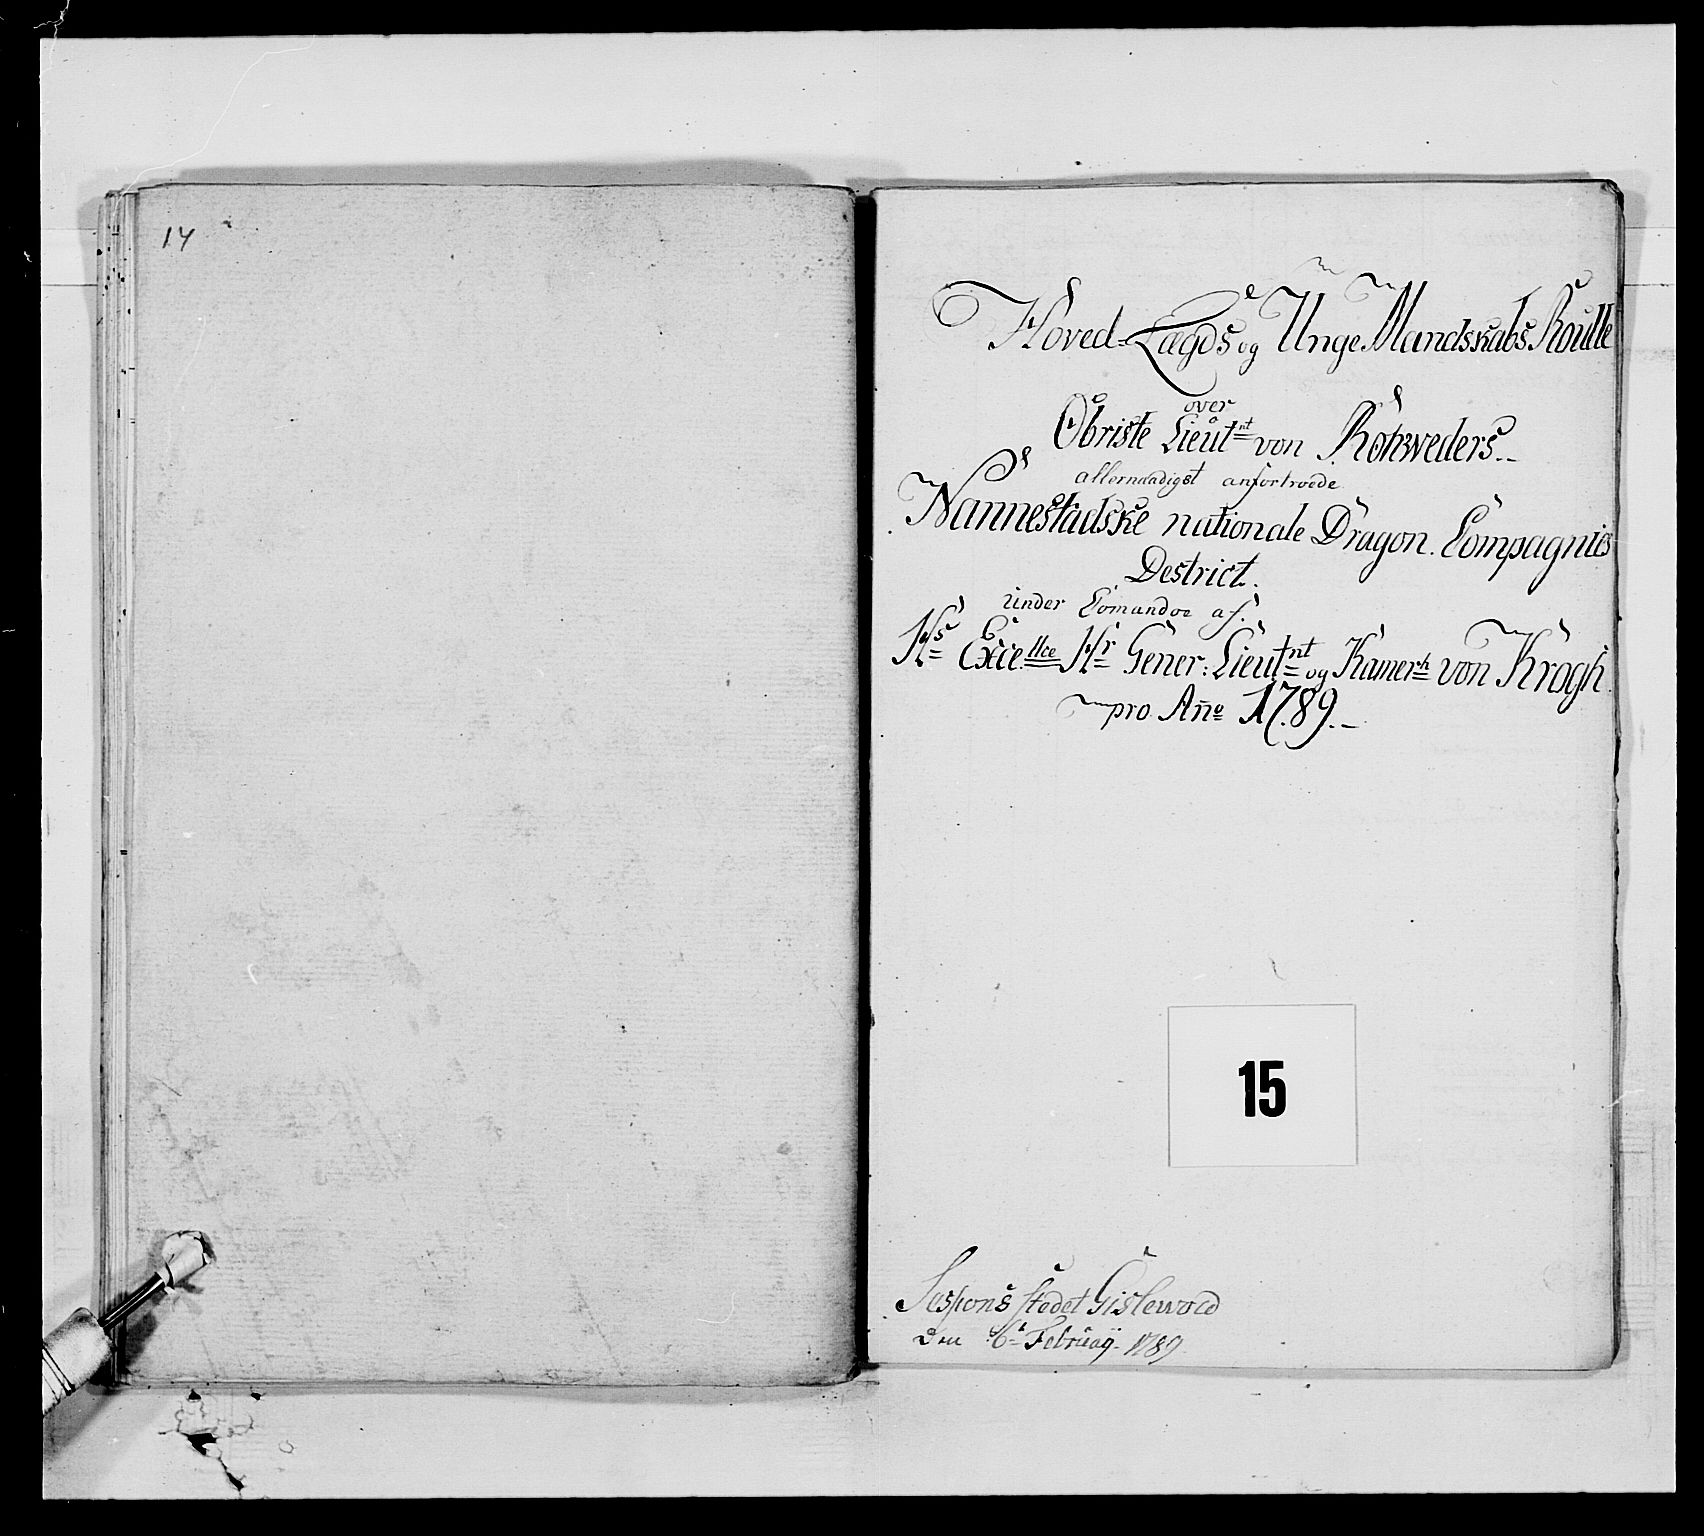 14
Hoved-Lægds og Unge Mandskabs Roulle
over
Obriste Lieut.nt von Rohweders.-
allernaadigst anfortroede
Nannestadske nationale Dragon. Compagnies
District.
under Comando af.
Hs Excellce Hr Gener: Lieutnt og Kamerh von Krogh.
pro Año 1789.-
15
Sessions stedet Gislewold
den 6t Februarÿ. 1789